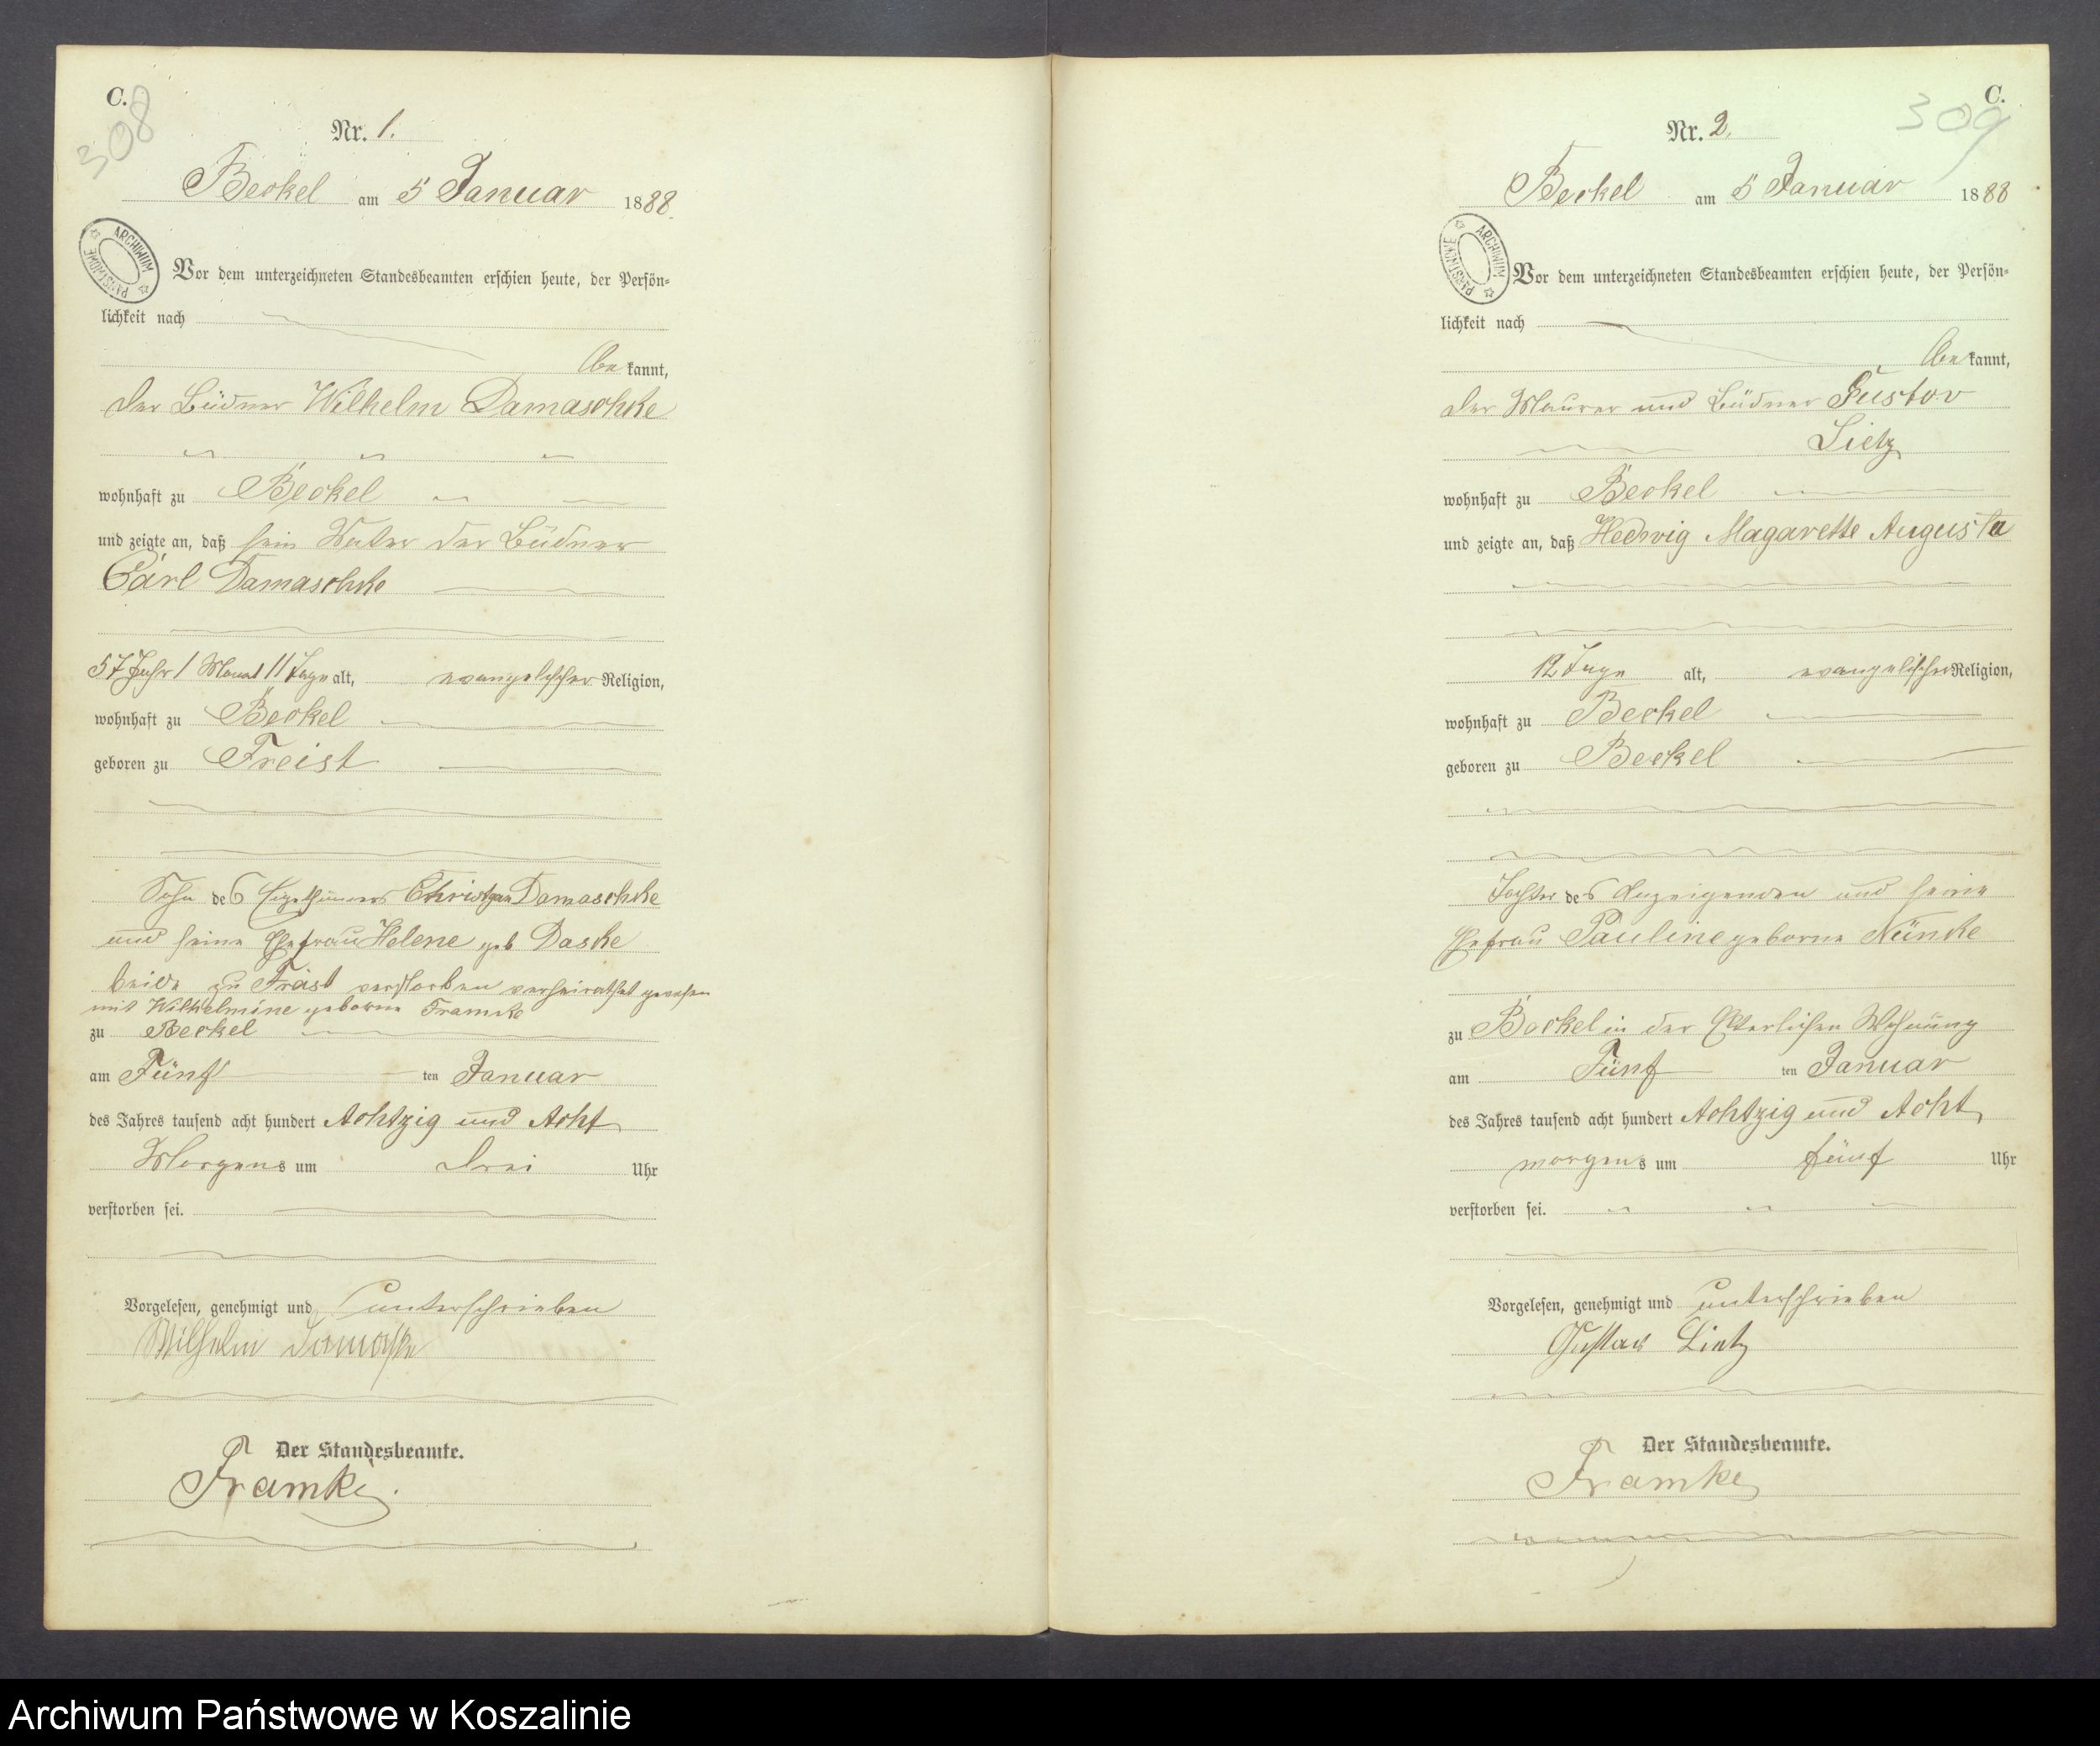 C.
308
Nr. 1.
Beckel am 5 Januar 1888.
ARCHIWUM PAŃSTWOWE
Vor dem unterzeichneten Standesbeamten erschien heute, der Persön-
lichkeit nach
be kannt,
der Büdner Wilhelm Damaschke
wohnhaft zu Beckel
und zeigte an, daß sein Vater der Büdner
Carl Damaschke
57 Jahr 1 Monat 11 Tage alt, evangelischer Religion,
wohnhaft zu Beckel
geboren zu Freist
Sohn des Eigethümers Christian Damaschke
und seine Ehefrau Helene geb Daske
beide zu Freist verstorben verheirathet gewesen
mit Wilhelmine geborne Framke
zu Beckel
am Fünf ten Januar
des Jahres tausend acht hundert Achtzig und Acht
Morgens um Drei Uhr
verstorben sei.
Vorgelesen, genehmigt und unterschrieben
Wilhelm Damaske
Der Standesbeamte.
Framke.
C.
309
Nr. 2.
Beckel am 5 Januar 1888
ARCHIWUM PAŃSTWOWE
Vor dem unterzeichneten Standesbeamten erschien heute, der Persön-
lichkeit nach
be kannt,
der Maurer und Büdner Gustav
Lietz
wohnhaft zu Beckel
und zeigte an, daß Hedwig Magarette Augusta
12 Tage alt, evangelischer Religion,
wohnhaft zu Beckel
geboren zu Beckel
Tochter des Anzeigenden und seine
Ehefrau Pauline geborne Nünke
zu Beckel in der Elterlichen Wohnung
am Fünf ten Januar
des Jahres tausend acht hundert Achtzig und Acht
morgens um fünf Uhr
verstorben sei.
Vorgelesen, genehmigt und unterschrieben
Gustav Lietz
Der Standesbeamte.
Framke
Archiwum Państwowe w Koszalinie